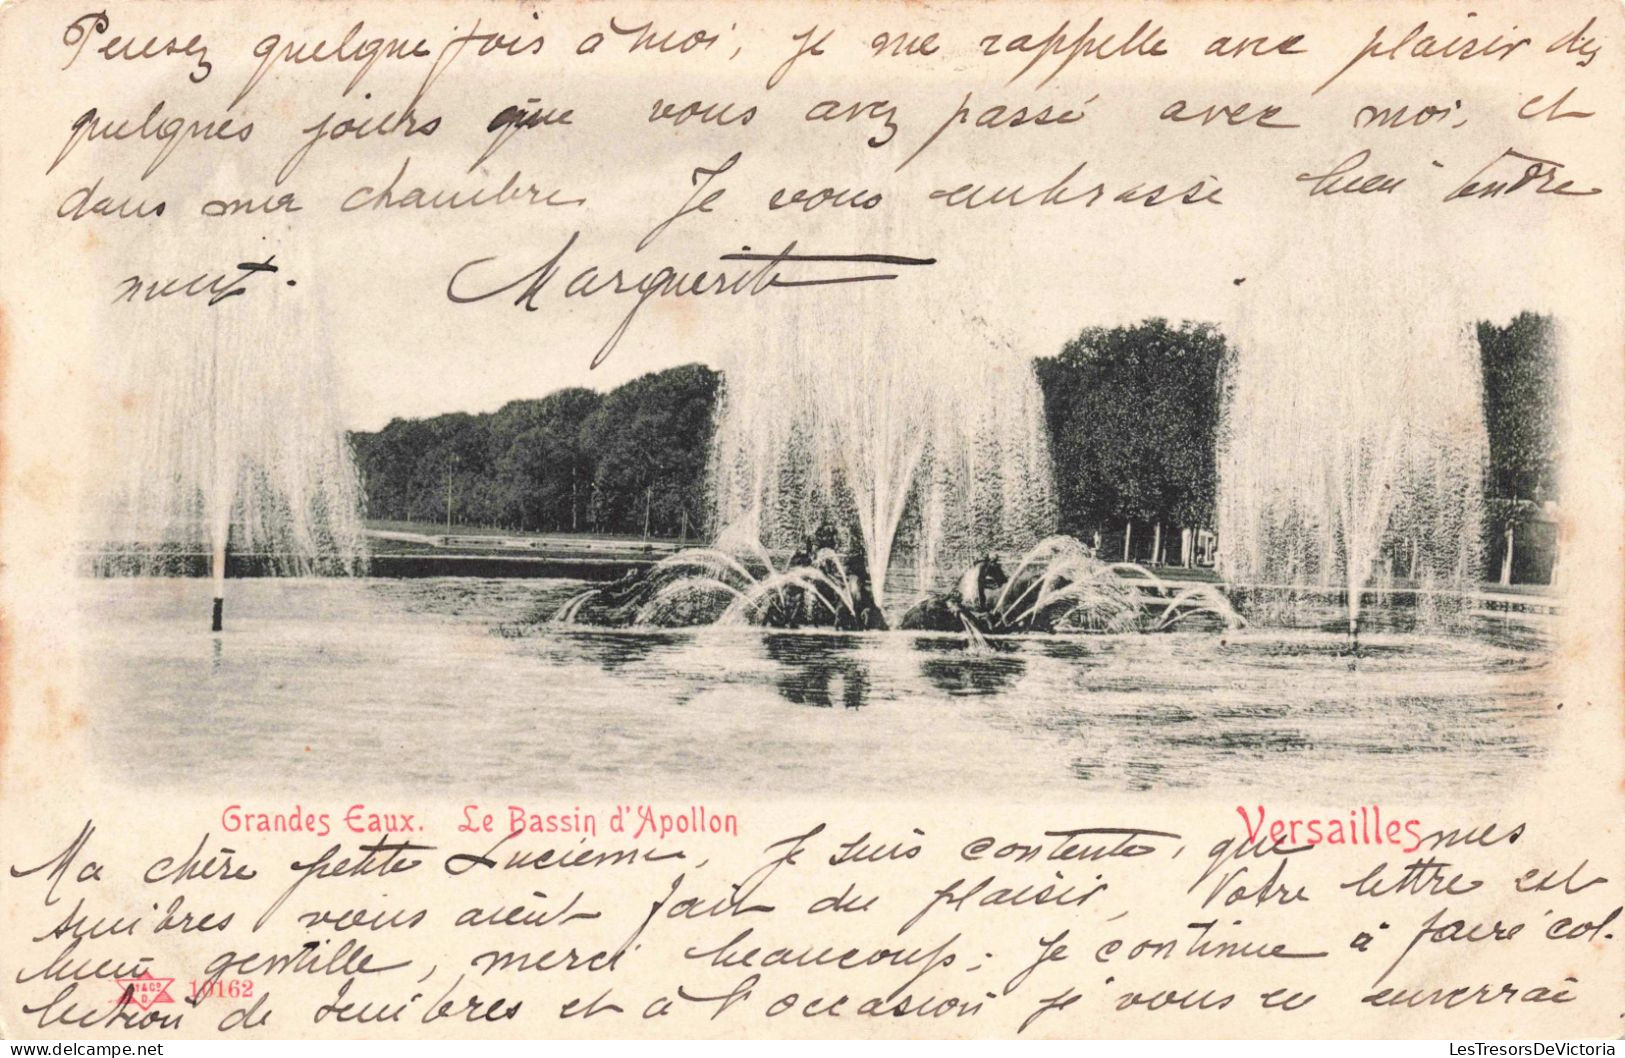 Pensez quelque fois à moi, je me rappelle avec plaisir des
quelques jours que vous avez passé avec moi, et
dans ma chambre. Je vous embrasse bien tendre
ment. Marguerite
Grandes Eaux. Le Bassin d'Apollon
Versailles
Ma chère petite Lucienne, je suis contente, que mes
timbres vous aient fait du plaisir, Votre lettre est
bien gentille, merci beaucoup; je continue à faire col-
lection de timbres et à l'occasion je vous en enverrai
10162
LesTresorsDeVictoria